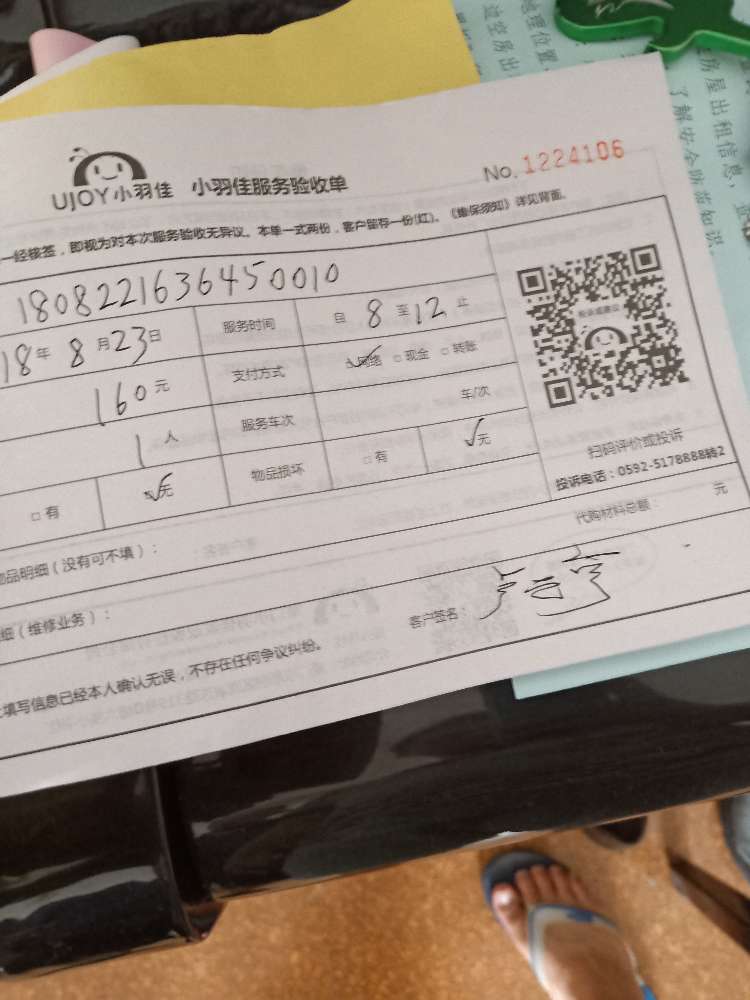 UJOY小羽佳 小羽佳服务验收单 No. 1224106
一经核签，即视为对本次服务验收无异议。本单一式两份，客户留存一份(红)。《维保须知》详见背面。
1808221636450010
18年8月23日 服务时间 自 8 至 12 止
160元 支付方式 ☑网络 □现金 □转账
1人 服务车次 车/次
□有 ☑无 物品损坏 □有 ☑无
扫码评价或投诉
投诉电话：0592-5178888转2
品明细（没有可不填）： 代购材料总额： 元
细（维修业务）：
客户签名：
填写信息已经本人确认无误，不存在任何争议纠纷。
地理位置
这空房出
房屋出租信息，
了解安全防范知识